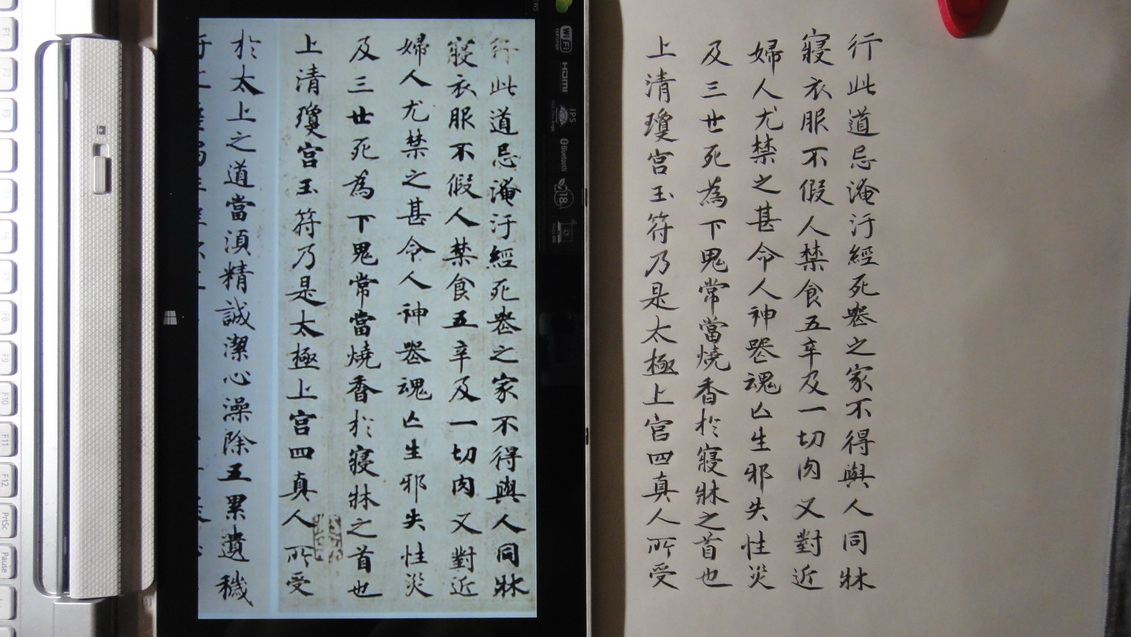 行此道忌淹汙經死喪之家不得與人同牀
寢衣服不假人禁食五辛及一切肉又對近
婦人尤禁之甚令人神喪魂亡生邪失性災
及三世死為下鬼常當燒香於寢牀之首也
上清瓊宮玉符乃是太極上宮四真人所受
行此道忌淹汙經死喪之家不得與人同牀
寢衣服不假人禁食五辛及一切肉又對近
婦人尤禁之甚令人神喪魂亡生邪失性災
及三世死為下鬼常當燒香於寢牀之首也
上清瓊宮玉符乃是太極上宮四真人所受
於太上之道當須精誠潔心澡除五累遺穢
WiFi
HDMI
IPS
Bluetooth
F9
F10
F11
F12
PrtSc
Pause